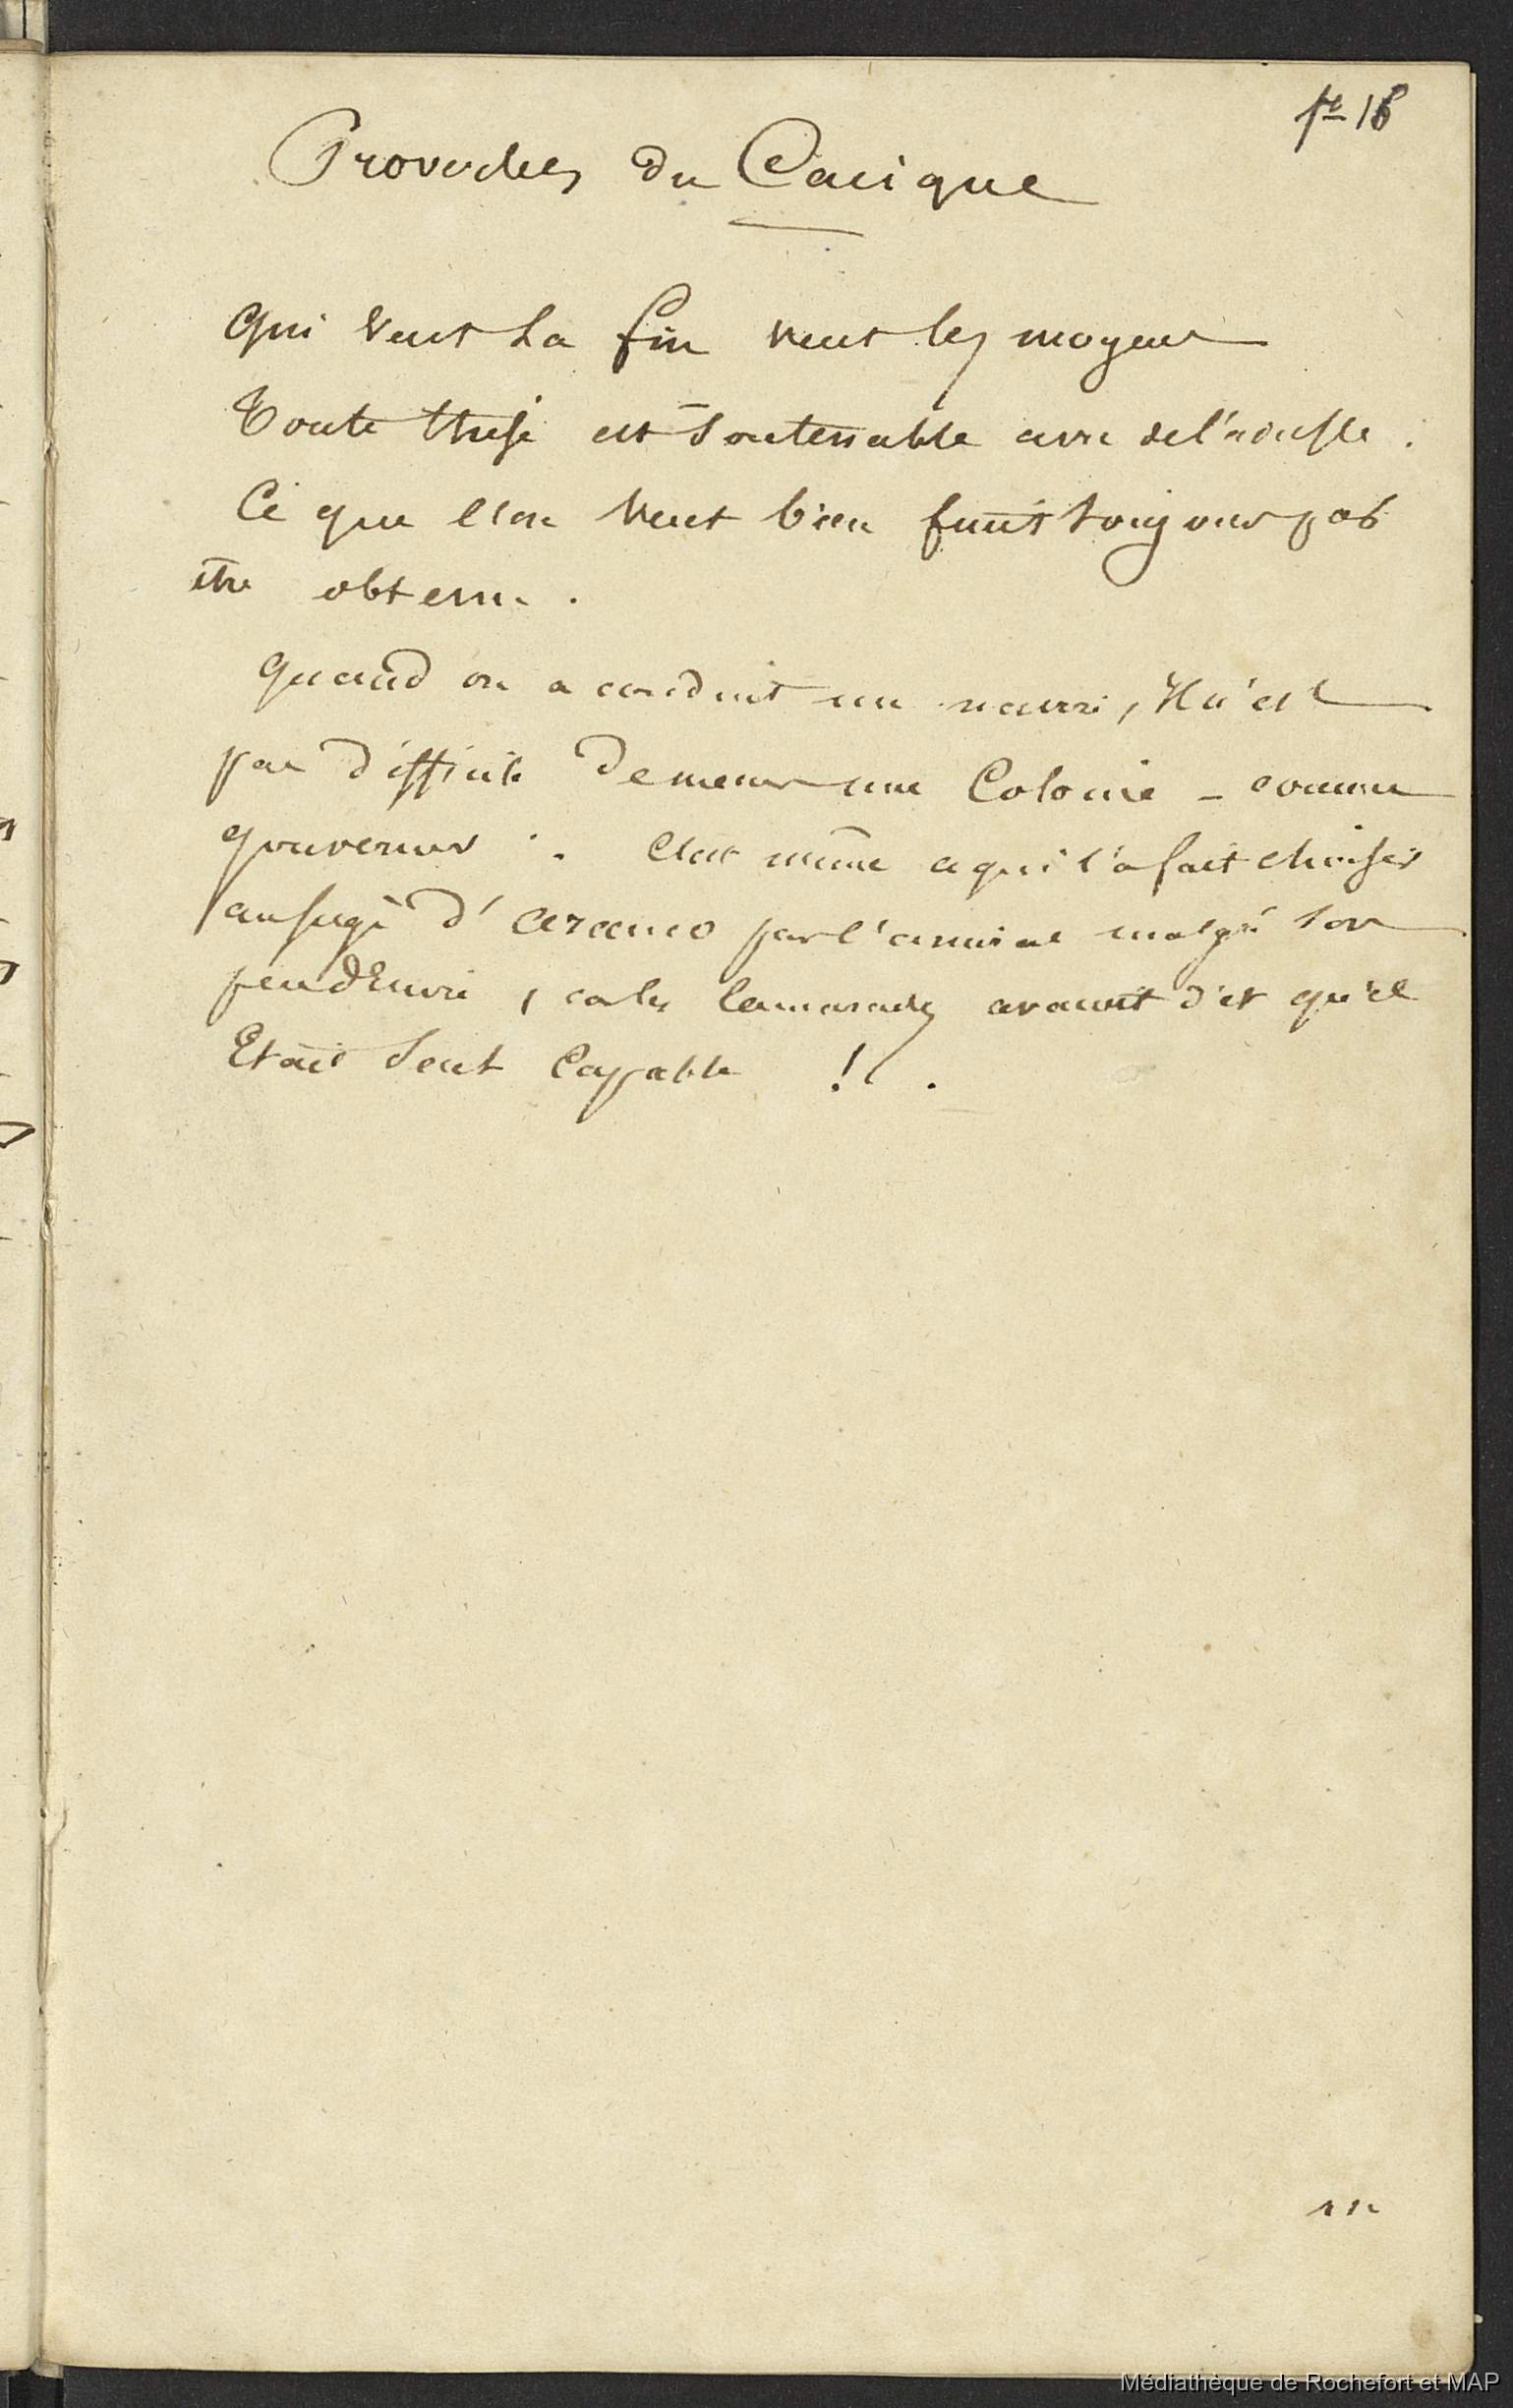 fe 18
Proverbes du Cacique
Qui veut la fin veut les moyens
Toute these est soutenable avec de l'adresse.
Ce que l'on veut bien finit toujours par
être obtenu.
Quand on a conduit un navire, il n'est
pas difficile de mener une Colonie - comme
gouverneur. C'est même ce qui l'a fait choisir
par l'amiral malgré son
peu d'Envie, car les camarades avaient dit qu'il
Etait seul Capable !
Médiathèque de Rochefort et MAP